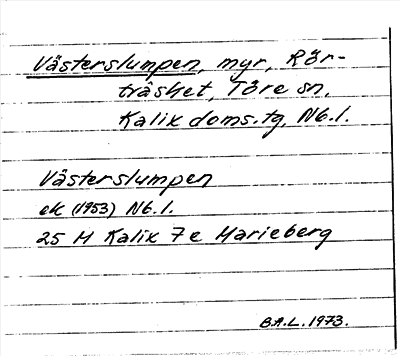 Västerslumpen, myr, Rör-
träsket, Töre sn,
Kalix doms.tg, Nb.l.
Västerslumpen
ek (1953) Nb.l.
25 M Kalix 7e Marieberg
B.A.L. 1973.